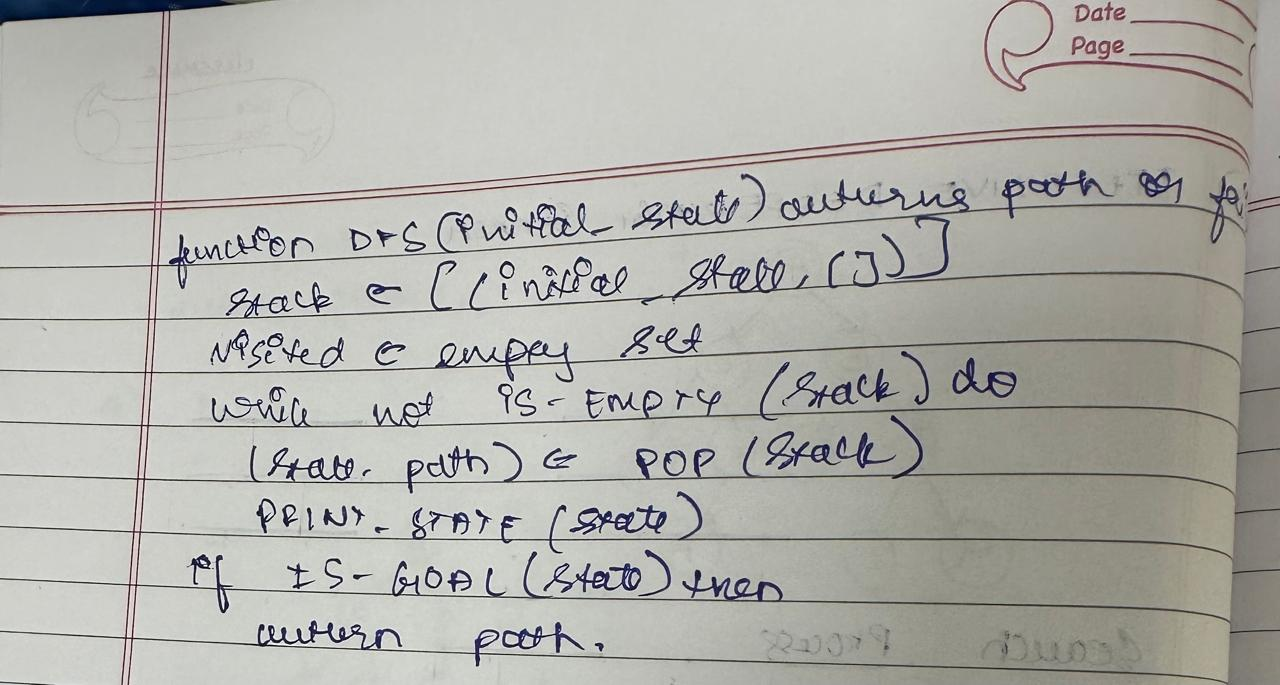 Date
Page
function DFS (initial_state) returns path or fai
stack ← [(initial_state, [])]
visited ← empty set
while not is-EMPTY (stack) do
(state, path) ← POP (stack)
PRINT-STATE (state)
if IS-GOAL (state) then
return path.
Search Process